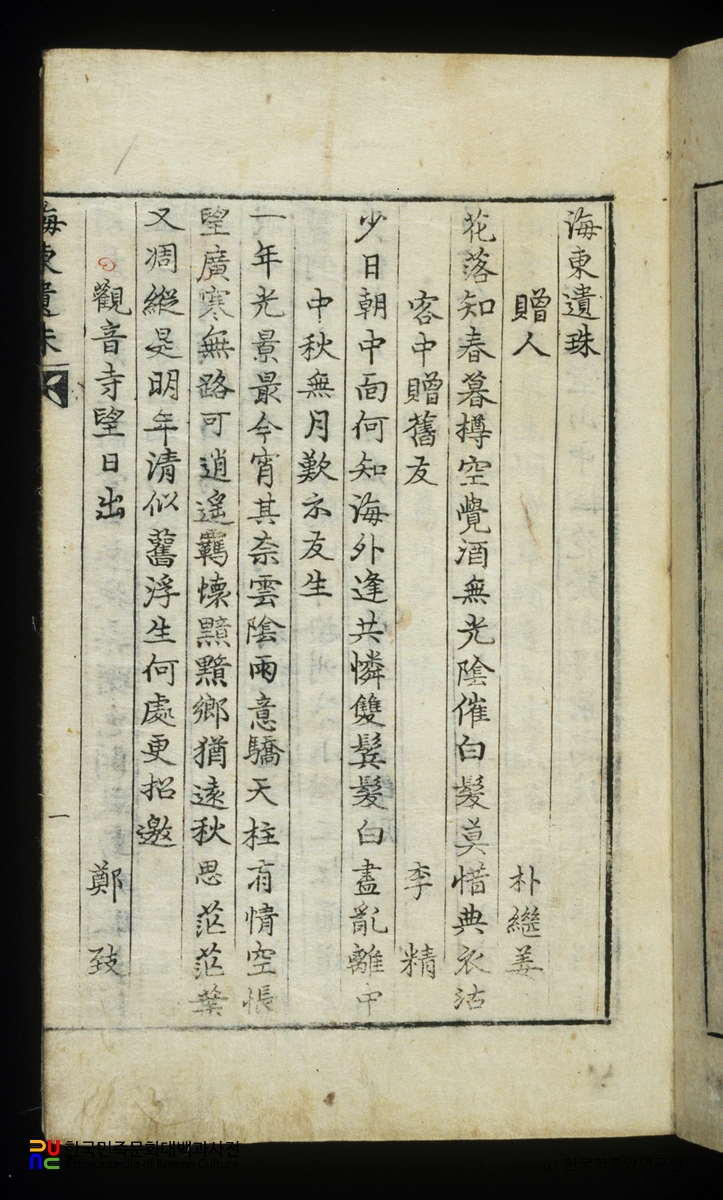 海東遺珠
贈人 朴繼姜
花落知春暮樽空覺酒無光陰催白髮莫惜典衣沽
客中贈舊友 李精
少日朝中面何知海外逢共憐雙鬂髮白盡亂離中
中秋無月歎示友生
一年光景最今宵其奈雲陰雨意驕天柱有情空悵
望廣寒無路可逍遙羈懷黯黯鄕猶遠秋思茫茫葉
又凋縱是明年清似舊浮生何處更招邀
觀音寺望日出 鄭致
海東遺珠
一
한국민족문화대백과사전
Encyclopedia of Korean Culture
한국학중앙연구원